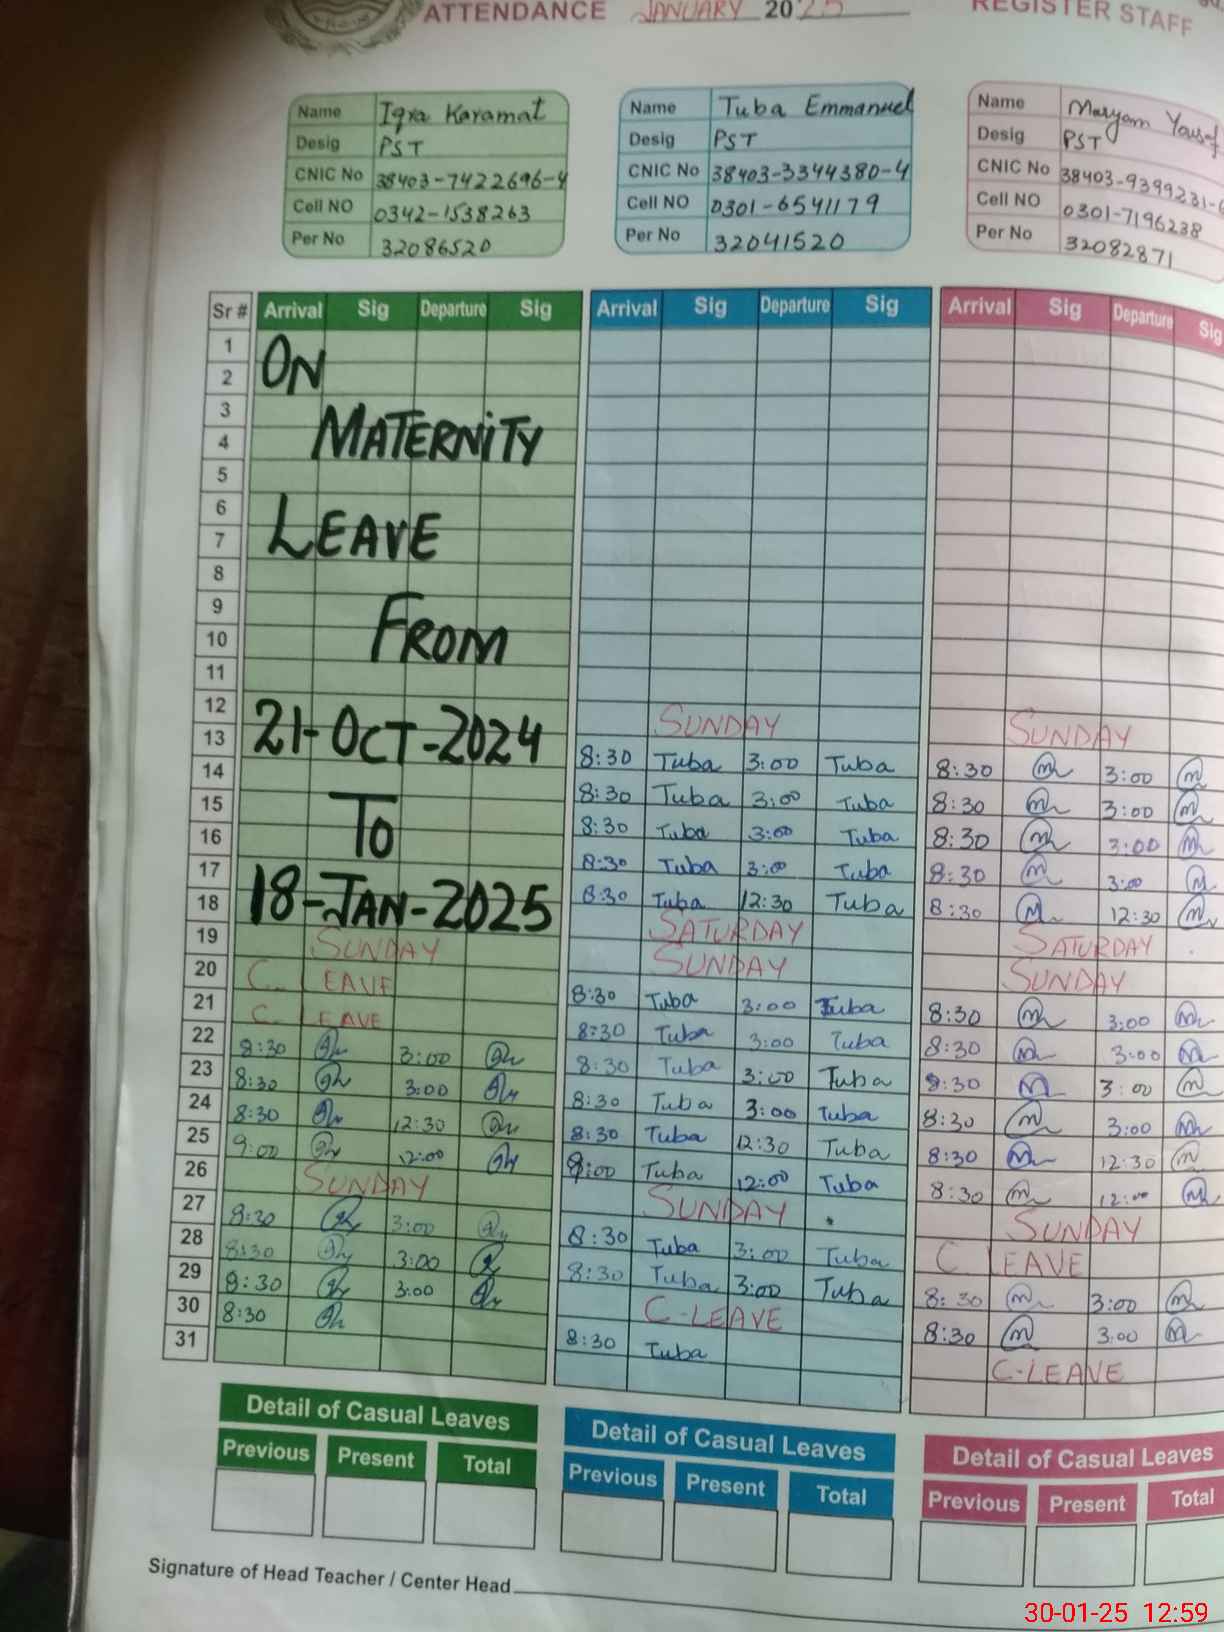 ATTENDANCE JANUARY 2025 REGISTER STAFF
Name Iqra Karamat
Desig PST
CNIC No 38403-7422696-4
Cell NO 0342-1538263
Per No 32086520
Name Tuba Emmanuel
Desig PST
CNIC No 38403-3344380-4
Cell NO 0301-6541179
Per No 32041520
Name Maryam Yousaf
Desig PST
CNIC No 38403-9399231-
Cell NO 0301-7196238
Per No 32082871
Sr # Arrival Sig Departure Sig Arrival Sig Departure Sig Arrival Sig Departure Sig
1
2
3
4
5
6
7
8
9
10
11
12
13
14
15
16
17
18
19
20
21
22
23
24
25
26
27
28
29
30
31
ON
MATERNITY
LEAVE
FROM
21-OCT-2024
TO
18-JAN-2025
SUNDAY
C. LEAVE
C. LEAVE
8:30 3:00
8:30 3:00
8:30 12:30
9:00 12:00
SUNDAY
8:30 3:00
8:30 3:00
8:30 3:00
8:30
SUNDAY
8:30 Tuba 3:00 Tuba
8:30 Tuba 3:00 Tuba
8:30 Tuba 3:00 Tuba
8:30 Tuba 3:00 Tuba
8:30 Tuba 12:30 Tuba
SATURDAY
SUNDAY
8:30 Tuba 3:00 Tuba
8:30 Tuba 3:00 Tuba
8:30 Tuba 3:00 Tuba
8:30 Tuba 3:00 Tuba
8:30 Tuba 12:30 Tuba
9:00 Tuba 12:00 Tuba
SUNDAY
8:30 Tuba 3:00 Tuba
8:30 Tuba 3:00 Tuba
C-LEAVE
8:30 Tuba
SUNDAY
8:30 3:00
8:30 3:00
8:30 3:00
8:30 3:00
8:30 12:30
SATURDAY
SUNDAY
8:30 3:00
8:30 3:00
8:30 3:00
8:30 3:00
8:30 12:30
8:30 12:00
SUNDAY
C LEAVE
8:30 3:00
8:30 3:00
C-LEAVE
Detail of Casual Leaves
Previous Present Total
Detail of Casual Leaves
Previous Present Total
Detail of Casual Leaves
Previous Present Total
Signature of Head Teacher / Center Head
30-01-25 12:59